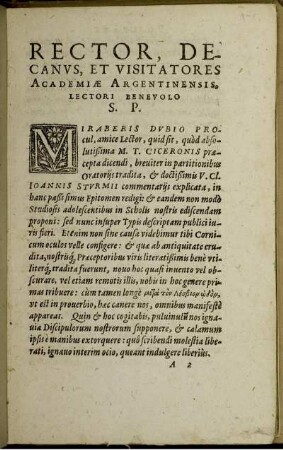 RECTOR, DE-
CANVS, ET VISITATORES
ACADEMIÆ ARGENTINENSIS,
LECTORI BENEVOLO
S. P.
MIRABERIS DVBIO PRO-
cul, amice Lector, quid sit, quòd absolu-
tissima M. T. CICERONIS præ-
cepta dicendi, breuiter in partitionibus
Oratorijs tradita, & doctissimis V. Cl.
IOANNIS STVRMII commentarijs explicata, in
hanc pusillimus Epitomen redigi & eandem non modò
Studiosis adolescentibus in Scholis nostris ediscendam
proponi: sed nunc insuper Typis descriptam publici iu-
ris fieri. Etenim non sine causa videbimur tibi Corni-
cum oculos velle configere: & quæ ab antiquitate eru-
dita, nostrisq́; Præceptoribus viris literatißimis benè vti-
literq́; tradita fuerunt, nouo hoc quasi inuento vel obs-
curare. vel etiam remotis illis, nobis in hoc genere pri-
mas tribuere: cùm tamen longè μετὰ τὸν Λέσβιον ᾠδὸν,
vt est in prouerbio, hæc canere nos, omnibus manifestè
appareat. Quin & hoc cogitabis, puluinulũ nos igna-
uia Discipulorum nostrorum supponere, & calamum
ipsis è manibus extorquere: quò scribendi molestia libe-
rati, ignauo interim ocio, queant indulgere liberius.
A 2